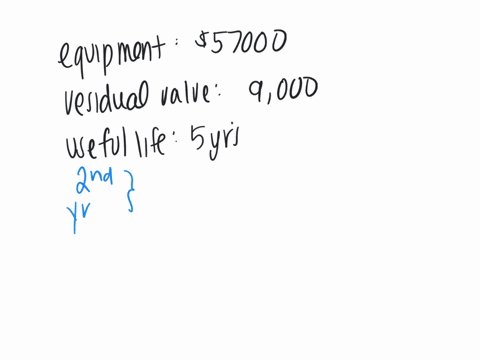 equipment: $57000
residual value: 9,000
useful life: 5 yrs
2nd }
yr